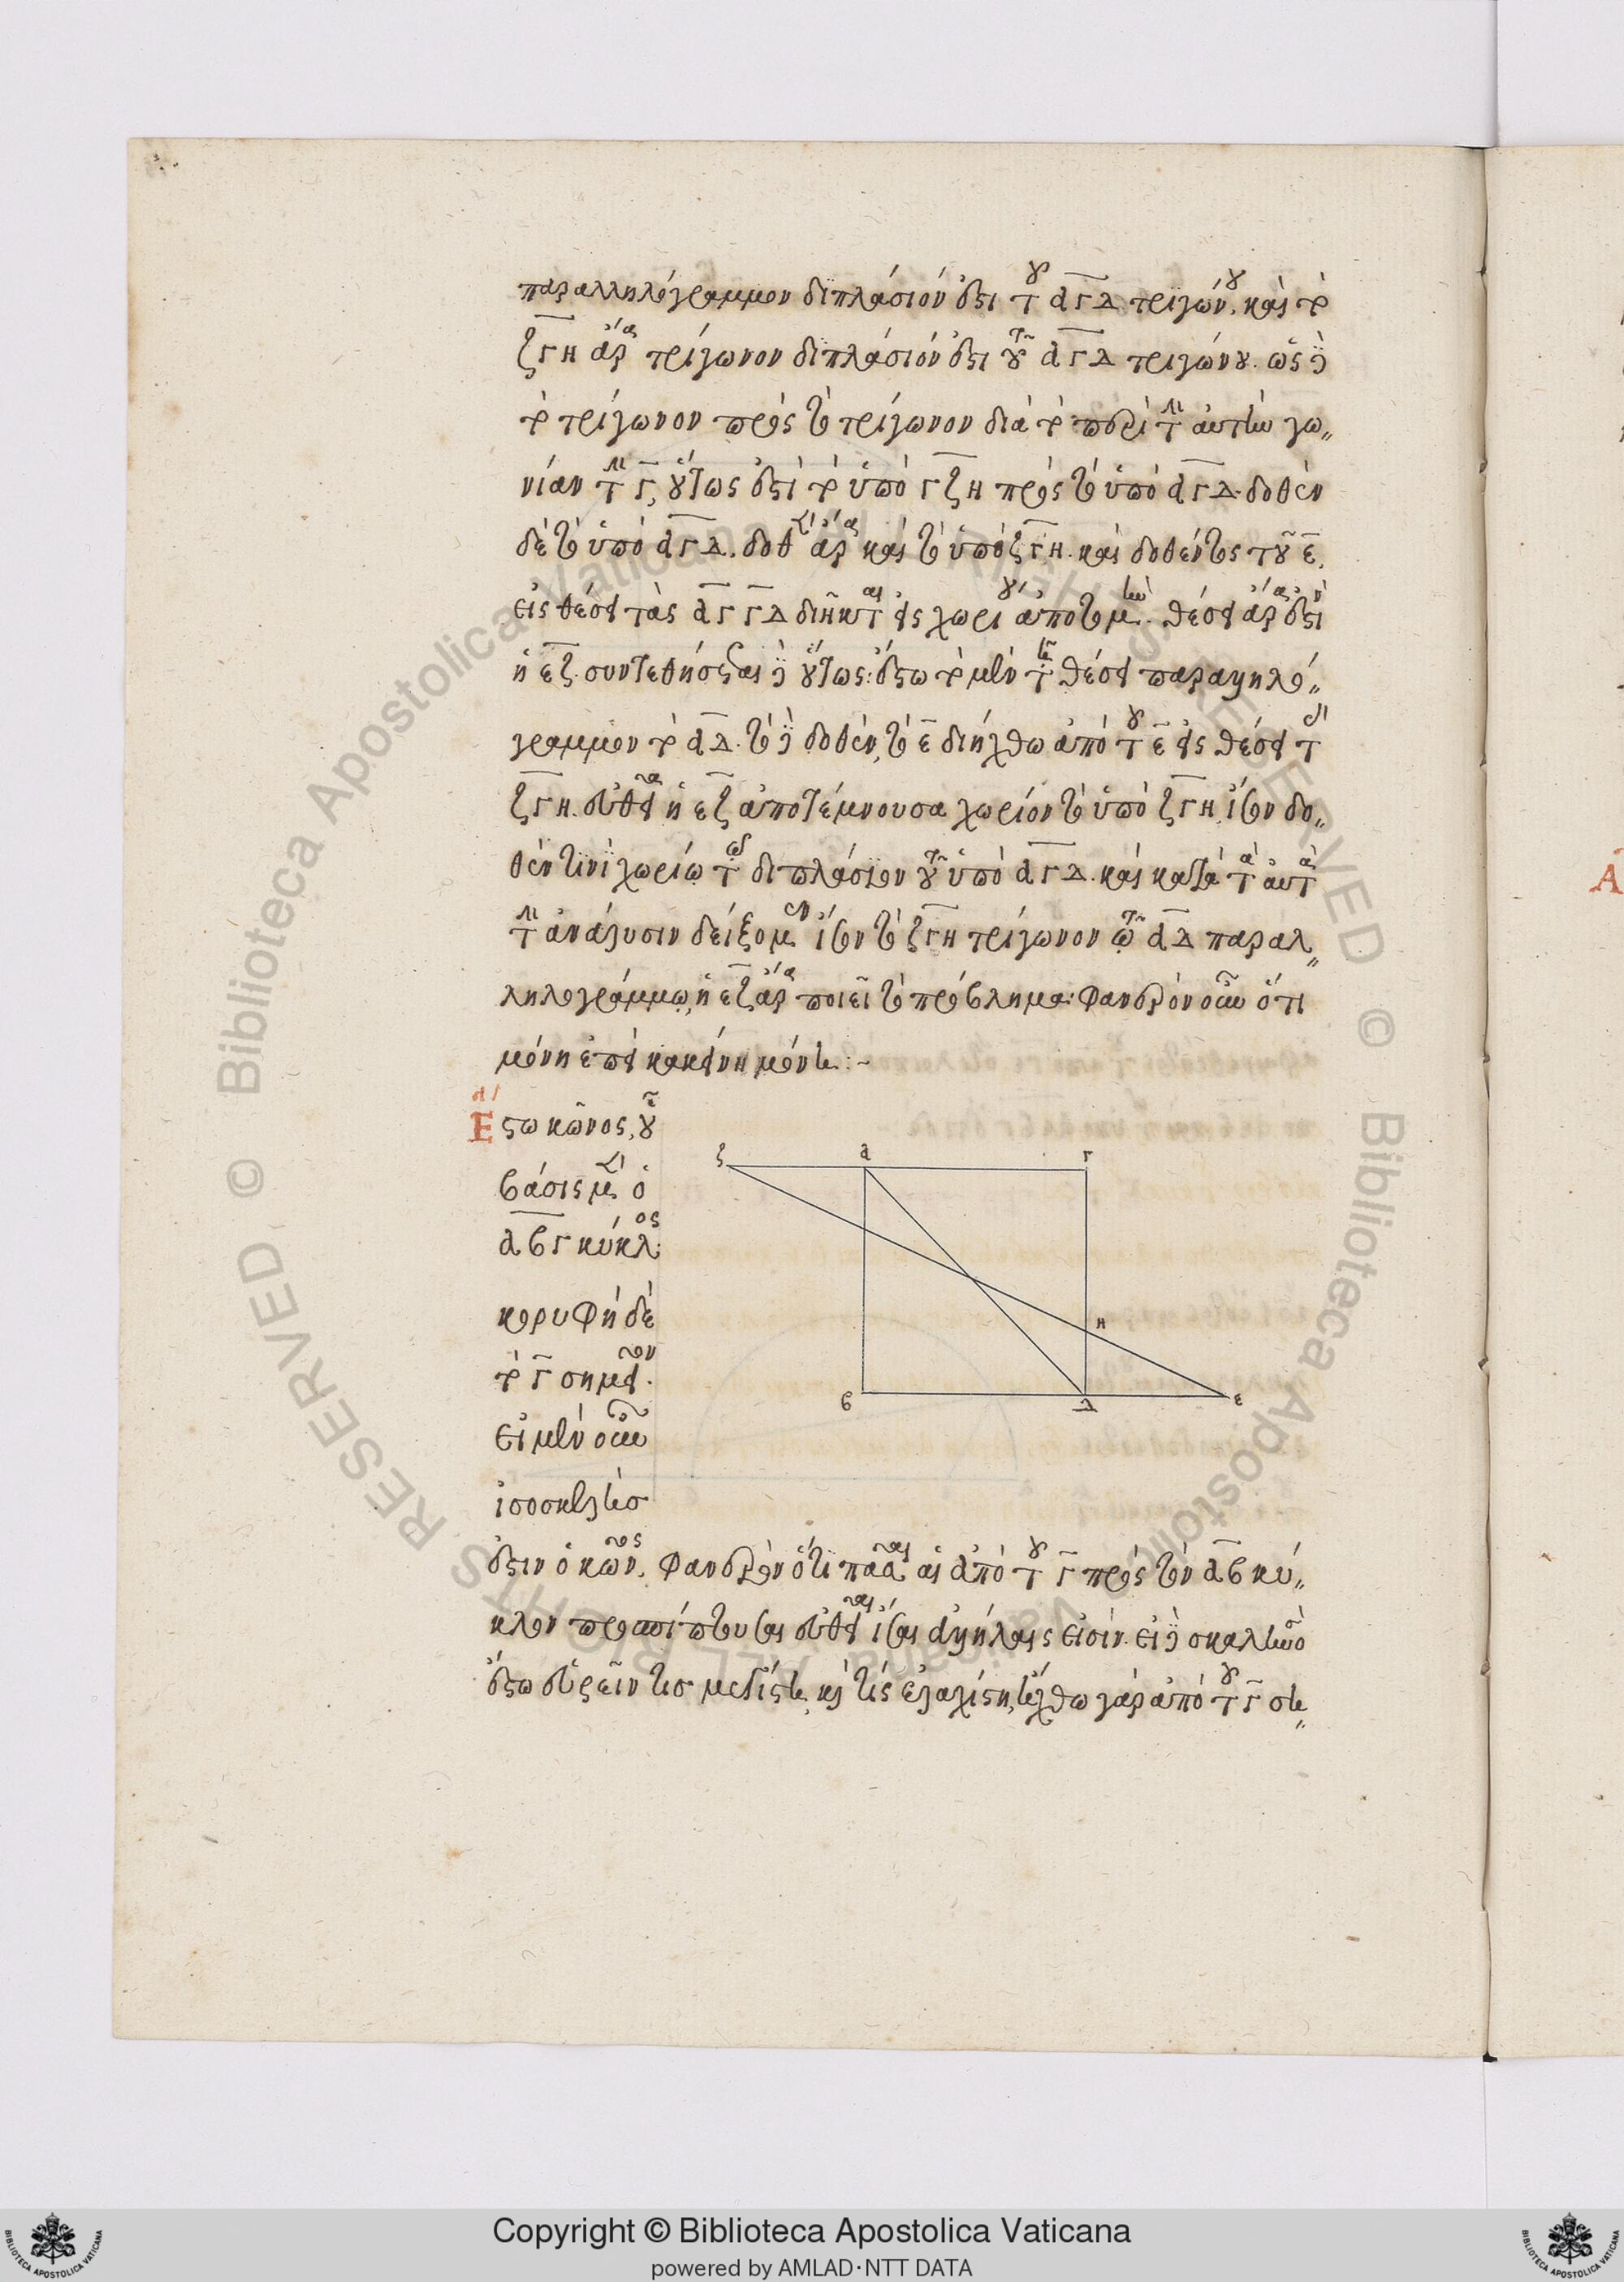 παραλληλόγραμμον διπλάσιόν ἐστι τοῦ ΑΓΔ τριγώνου. καὶ τὸ
ΖΓΗ ἄρα τρίγωνον διπλάσιόν ἐστι τοῦ ΑΓΔ τριγώνου. ὡς δὲ
τὸ τρίγωνον πρὸς τὸ τρίγωνον διὰ τὸ περὶ τὴν αὐτὴν γω„
νίαν τὴν Γ, οὕτως ἐστὶ τὸ ὑπὸ ΓΖΗ πρὸς τὸ ὑπὸ ΑΓΔ. δοθὲν
δὲ τὸ ὑπὸ ΑΓΔ. δοθὲν ἄρα καὶ τὸ ὑπὸ ΖΓΗ. καὶ δοθέντος τοῦ Ε,
εἰς θέσει τὰς ΑΓ ΓΔ διῆκται εἰς χωρίου ἀποτομήν. θέσει ἄρα ἐστὶν
ἡ ΕΖ. συντεθήσεται δὲ οὕτως: ἔστω τὸ μὲν τῇ θέσει παραλληλό„
γραμμον τὸ ΑΔ. τὸ δὲ δοθὲν, τὸ Ε διήχθω ἀπὸ τοῦ Ε εἰς θέσει τὴν
ΖΓΗ. εὐθεῖα ἡ ΕΖ ἀποτέμνουσα χωρίον τὸ ὑπὸ ΖΓΗ, ἴσον δο„
θέν τινι χωρίῳ τῷ διπλάσιον τοῦ ὑπὸ ΑΓΔ. καὶ κατὰ τὰ αὐτὰ
τὴν ἀνάλυσιν δείξομεν ἴσον τὸ ΖΓΗ τρίγωνον τῷ ΑΔ παραλ„
ληλογράμμῳ, ἡ ΕΖ ἄρα ποιεῖ τὸ πρόβλημα: φανερὸν οὖν ὅτι
μόνη ἐπεὶ κἀκείνη μόνη:~
Ἔστω κῶνος, οὗ
βάσις μὲν ὁ
ΑΒΓ κύκλος:
κορυφὴ δὲ
τὸ Γ σημεῖον.
εἰ μὲν οὖν
ἰσοσκελής
ἐστιν ὁ κῶνος, φανερὸν ὅτι πᾶσαι αἱ ἀπὸ τοῦ Γ πρὸς τὸν ΑΒ κύ„
κλον προσπίπτουσαι εὐθεῖαι ἴσαι ἀλλήλαις εἰσίν. εἰ δὲ σκαληνὸς
ἔστω εὑρεῖν τίς μεγίστη, καὶ τίς ἐλαχίστη, ἤχθω γὰρ ἀπὸ τοῦ Γ ση„
ζ
α
Γ
Η
β
Δ
ε
© Biblioteca Apostolica Vaticana ALL RIGHTS RESERVED
Copyright © Biblioteca Apostolica Vaticana
powered by AMLAD·NTT DATA